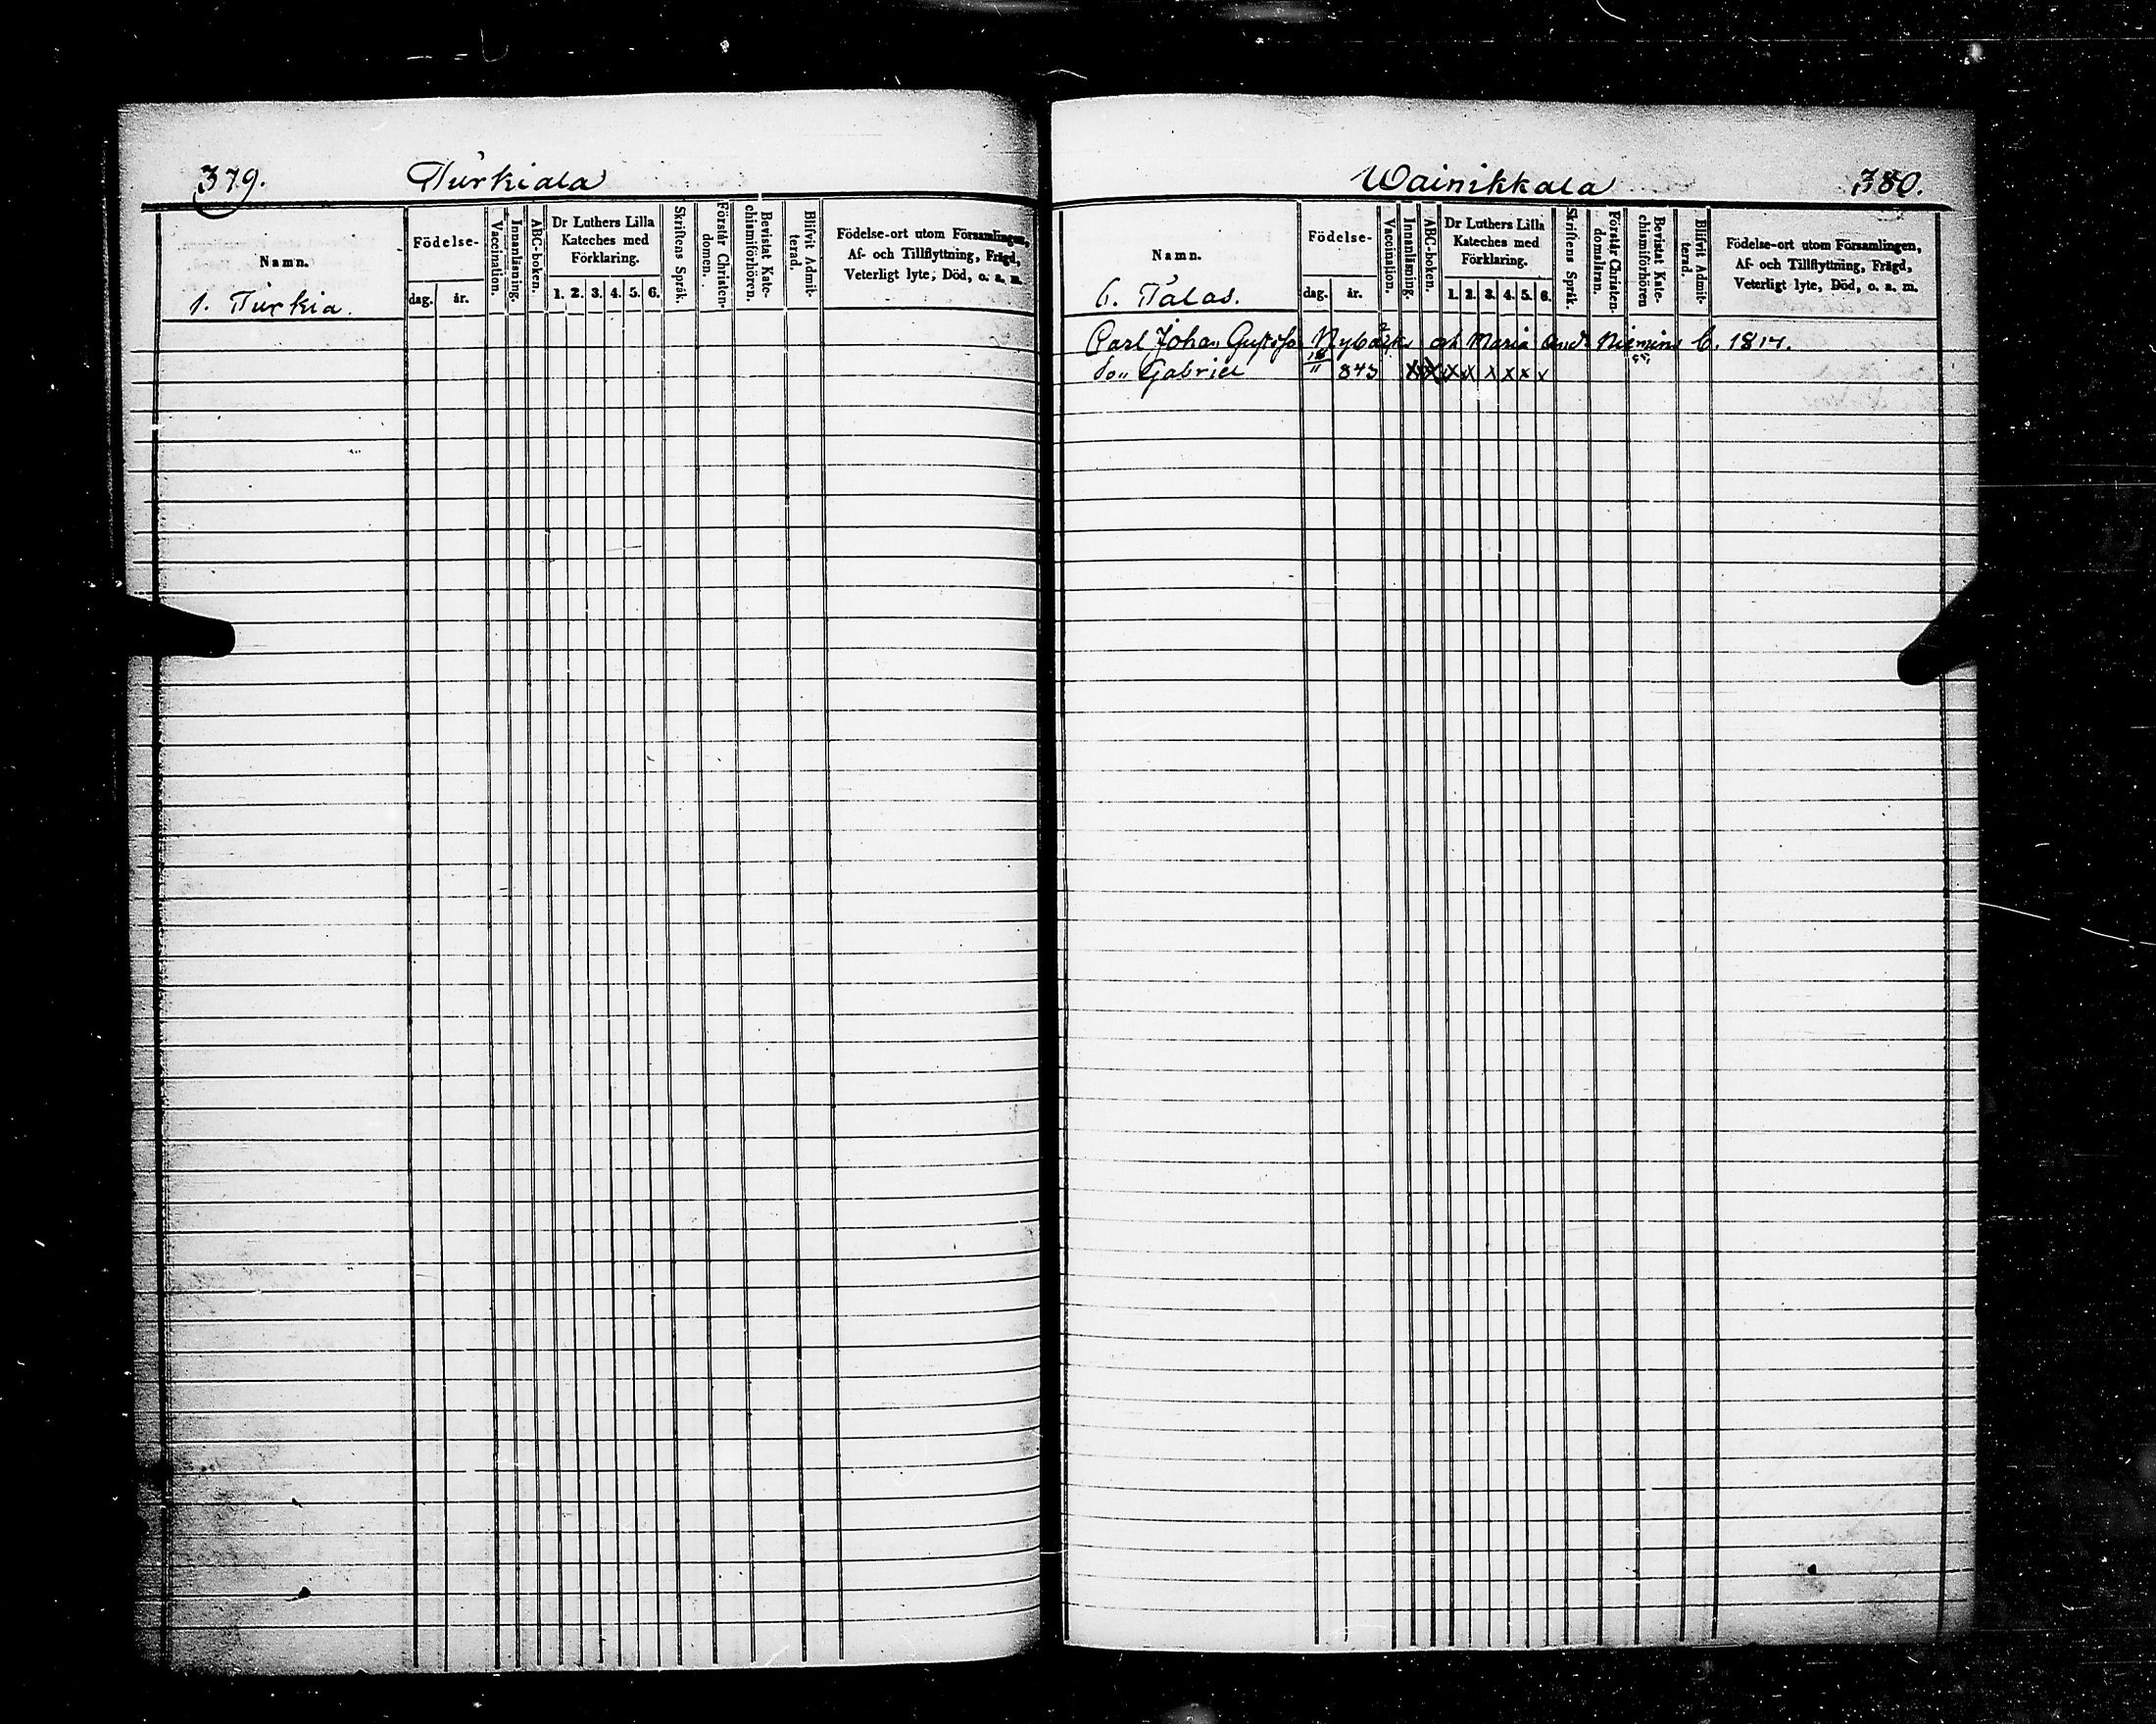 379. Turkiala
Namn.
1. Turkia.
Födelse-
dag. år.
Vaccination.
Innanläsning.
ABC-boken.
Dr Luthers Lilla
Kateches med
Förklaring.
1. 2. 3. 4. 5. 6.
Skriftens Språk.
Förstår Christen-
domen.
Bevistat Kate-
chismiförhören.
Blifvit Admit-
terad.
Födelse-ort utom Församlingen,
Af- och Tillflyttning, Frägd,
Veterligt lyte, Död, o. s. m.
Wainikkala 380.
Namn.
6. Talas.
Födelse-
dag. år.
Vaccination.
Innanläsning.
ABC-boken.
Dr Luthers Lilla
Kateches med
Förklaring.
1. 2. 3. 4. 5. 6.
Skriftens Språk.
Förstår Christen-
domsläran.
Bevistat Kate-
chismiförhören
Blifvit Admit-
terad.
Födelse-ort utom Församlingen,
Af- och Tillflyttning, Frägd,
Veterligt lyte, Död, o. s. m.
Carl Johan och Maria And.
Gabriel 843 X X X X X X X X